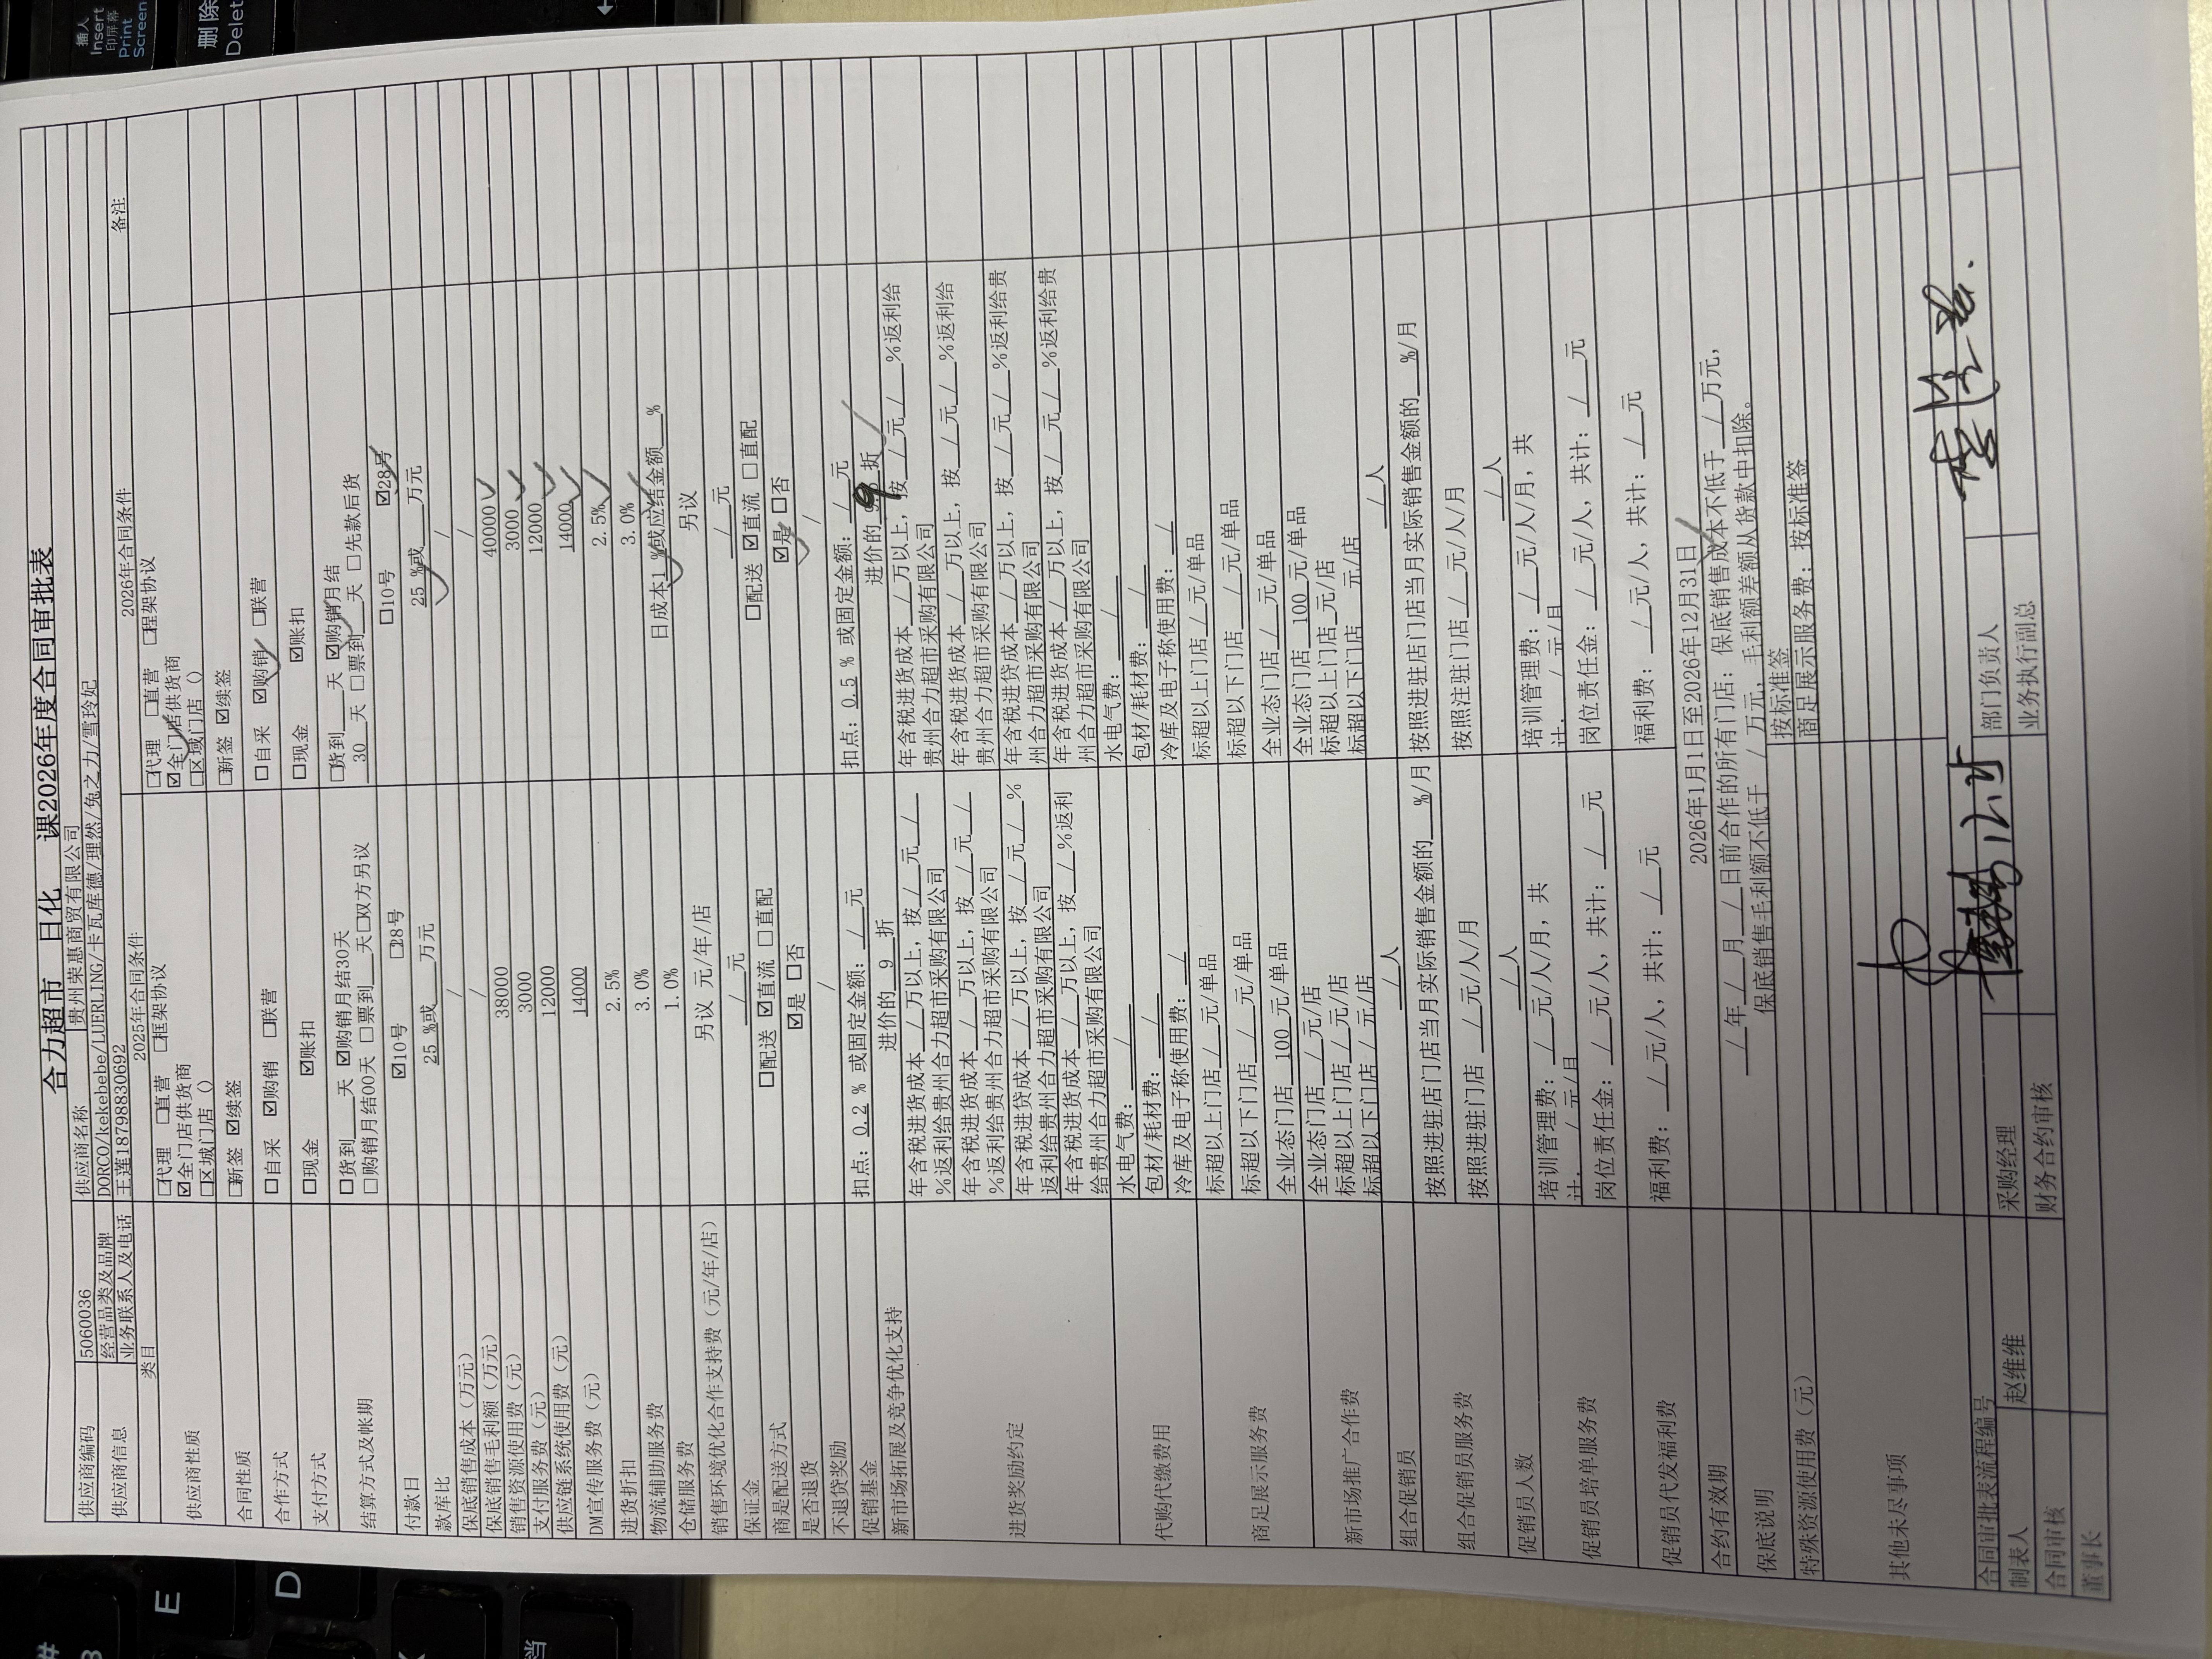 合力超市 日化 课2026年度合同审批表
供应商编码 5060036 供应商名称 贵州荣惠商贸有限公司
供应商信息 经营品类及品牌 DORCO/kekebebe/LUERLING/卡瓦库德/理然/兔之力/雪玲妃
业务联系人及电话 王莲18798830692
类目 2025年合同条件 2026年合同条件 备注
供应商性质 □代理 □直营 □框架协议 □代理 □直营 □程架协议
☑全门店供货商 ☑全门店供货商
□区城门店（） □区域门店（）
合同性质 □新签 ☑续签 □新签 ☑续签
合作方式 □自采 ☑购销 □联营 □自采 ☑购销 □联营
支付方式 □现金 ☑账扣 □现金 ☑账扣
结算方式及帐期 □货到___天 ☑购销月结30天 □货到___天 ☑购销月结
□购销月结00天 □票到___天□双方另议 30 天 □票到___天 □先款后货
付款日 ☑10号 □28号 □10号 ☑28号
款库比 25 %或___万元 25 %或___万元
保底销售成本（万元） / /
保底销售毛利额（万元） / /
销售资源使用费（元） 38000 40000
支付服务费（元） 3000 3000
供应链系统使用费（元） 12000 12000
DM宣传服务费（元） 14000 14000
进货折扣 2.5% 2.5%
物流辅助服务费 3.0% 3.0%
仓储服务费 1.0% 日成本1 %或应结金额___%
销售环境优化合作支持费（元/年/店） 另议 元/年/店 另议
保证金 /元 /元
商是配送方式 □配送 ☑直流 □直配 □配送 ☑直流 □直配
是否退货 ☑是 □否 ☑是 □否
不退贷奖励 / /
促销基金 扣点：0.2 % 或固定金额：/元 扣点：0.5 % 或固定金额：/元
新市场拓展及竞争优化支持 进价的 9 折 进价的 9 折
进货奖励约定 年含税进货成本 / 万以上，按 / 元 / 年含税进货成本 / 万以上，按 / 元 / %返利给
%返利给贵州合力超市采购有限公司 贵州合力超市采购有限公司
年含税进货成本 / 万以上，按 / 元 / 年含税进货成本 / 万以上，按 / 元 / %返利给
%返利给贵州合力超市采购有限公司 贵州合力超市采购有限公司
年含税进贷成本 / 万以上，按 / 元 / % 年含税进贷成本 / 万以上，按 / 元 / %返利给贵
返利给贵州合力超市采购有限公司 州合力超市采购有限公司
年含税进货成本 / 万以上，按 / %返利 年含税进货成本 / 万以上，按 / 元 / %返利给贵
给贵州合力超市采购有限公司 州合力超市采购有限公司
代购代缴费用 水电气费： / 水电气费： /
包材/耗材费： / 包材/耗材费： /
冷库及电子称使用费： / 冷库及电子称使用费： /
商足展示服务费 标超以上门店 / 元/单品 标超以上门店 / 元/单品
标超以下门店 / 元/单品 标超以下门店 / 元/单品
全业态门店 100 元/单品 全业态门店 / 元/单品
新市场推广合作费 全业态门店 / 元/店 全业态门店 100 元/单品
标超以上门店 / 元/店 标超以上门店 元/店
标超以下门店 / 元/店 标超以下门店 元/店
组合促销员 /人 /人
组合促销员服务费 按照进驻店门店当月实际销售金额的___%/月 按照进驻店门店当月实际销售金额的___%/月
按照进驻门店 / 元/人/月 按照注驻门店 / 元/人/月
促销员人数 /人 /人
促销员培单服务费 培训管理费： / 元/人/月，共 培训管理费： / 元/人/月，共
计. / 元/月 计. / 元/月
岗位责任金： / 元/人，共计： / 元 岗位责任金： / 元/人，共计： / 元
促销员代发福利费 福利费： / 元/人，共计： / 元 福利费： / 元/人，共计： / 元
合约有效期 2026年1月1日至2026年12月31日
保底说明 / 年 / 月 / 日前合作的所有门店：保底销售成本不低于 / 万元，
保底销售毛利额不低于 / 万元，毛利额差额从货款中扣除。
特殊资源使用费（元） 按标准签
商足展示服务费：按标准签
其他未尽事项
合同审批表流程编号
制表人 赵维维 采购经理 部门负责人
合同审核 财务合约审核 业务执行副总
董事长
插入
Insert
印屏幕
Print
Screen
删除
Delet
E
D
#
3
X
当